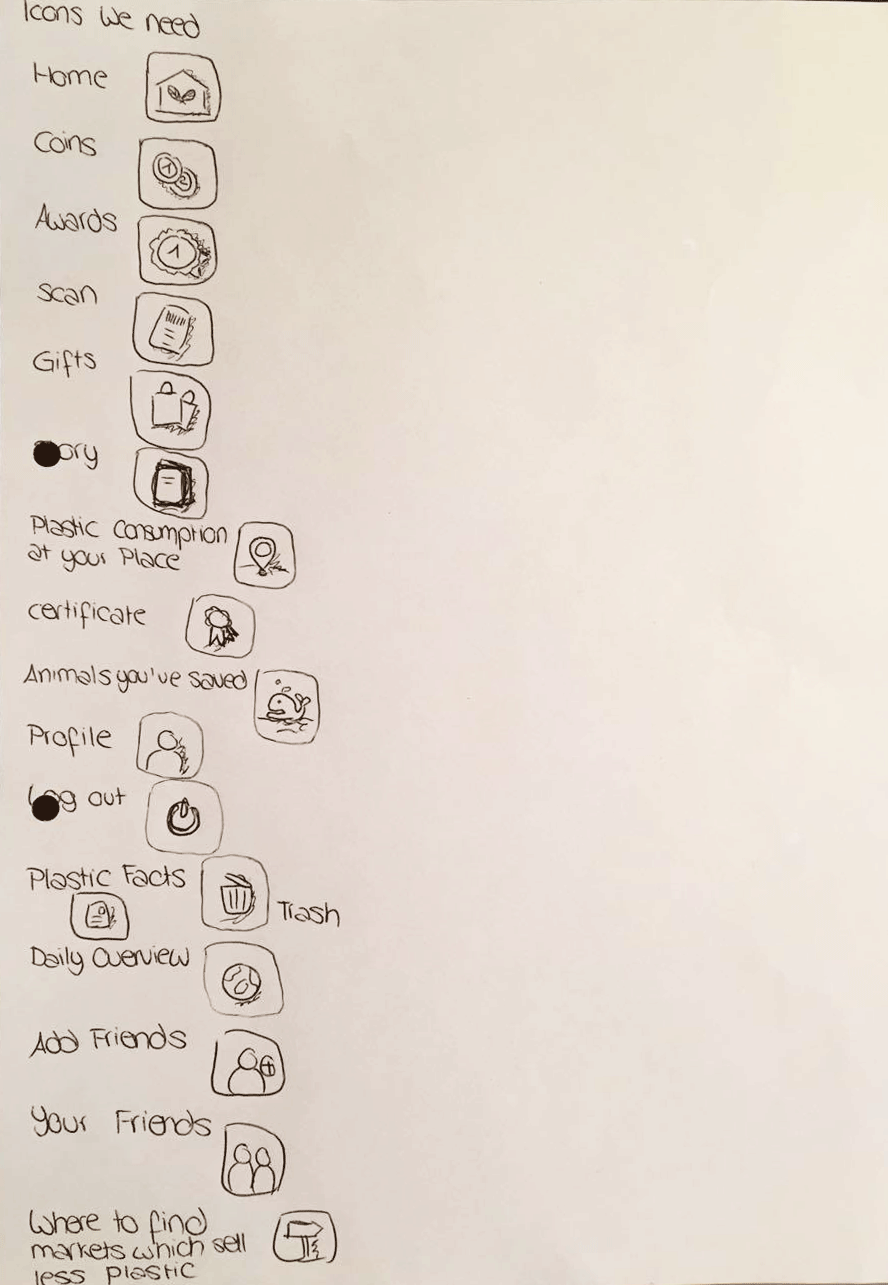 Icons we need
Home
Coins
1
2
Awards
1
Scan
Gifts
Plastic Consumption
at your Place
certificate
Animals you've saved
Profile
Log out
Plastic Facts
Trash
Daily Overview
Add Friends
Your Friends
Where to find
markets which sell
less plastic